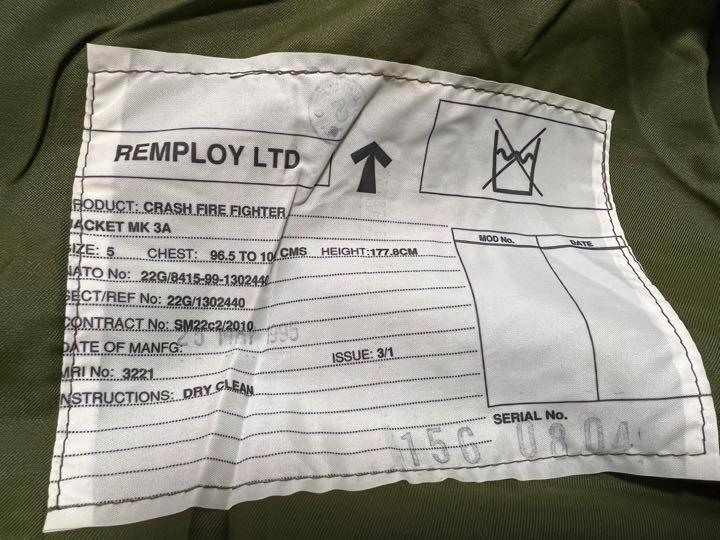 REMPLOY LTD
RODUCT: CRASH FIRE FIGHTER
ACKET MK 3A
IZE: 5 CHEST: 96.5 TO 10 CMS HEIGHT:177.8CM
ATO No: 22G/8415-99-1302440
SECT/REF No: 22G/1302440
CONTRACT No: SM22c2/2010
DATE OF MANFG: 1995
ISSUE: 3/1
MRI No: 3221
NSTRUCTIONS: DRY CLEAN
MOD No. DATE
SERIAL No.
156 0804